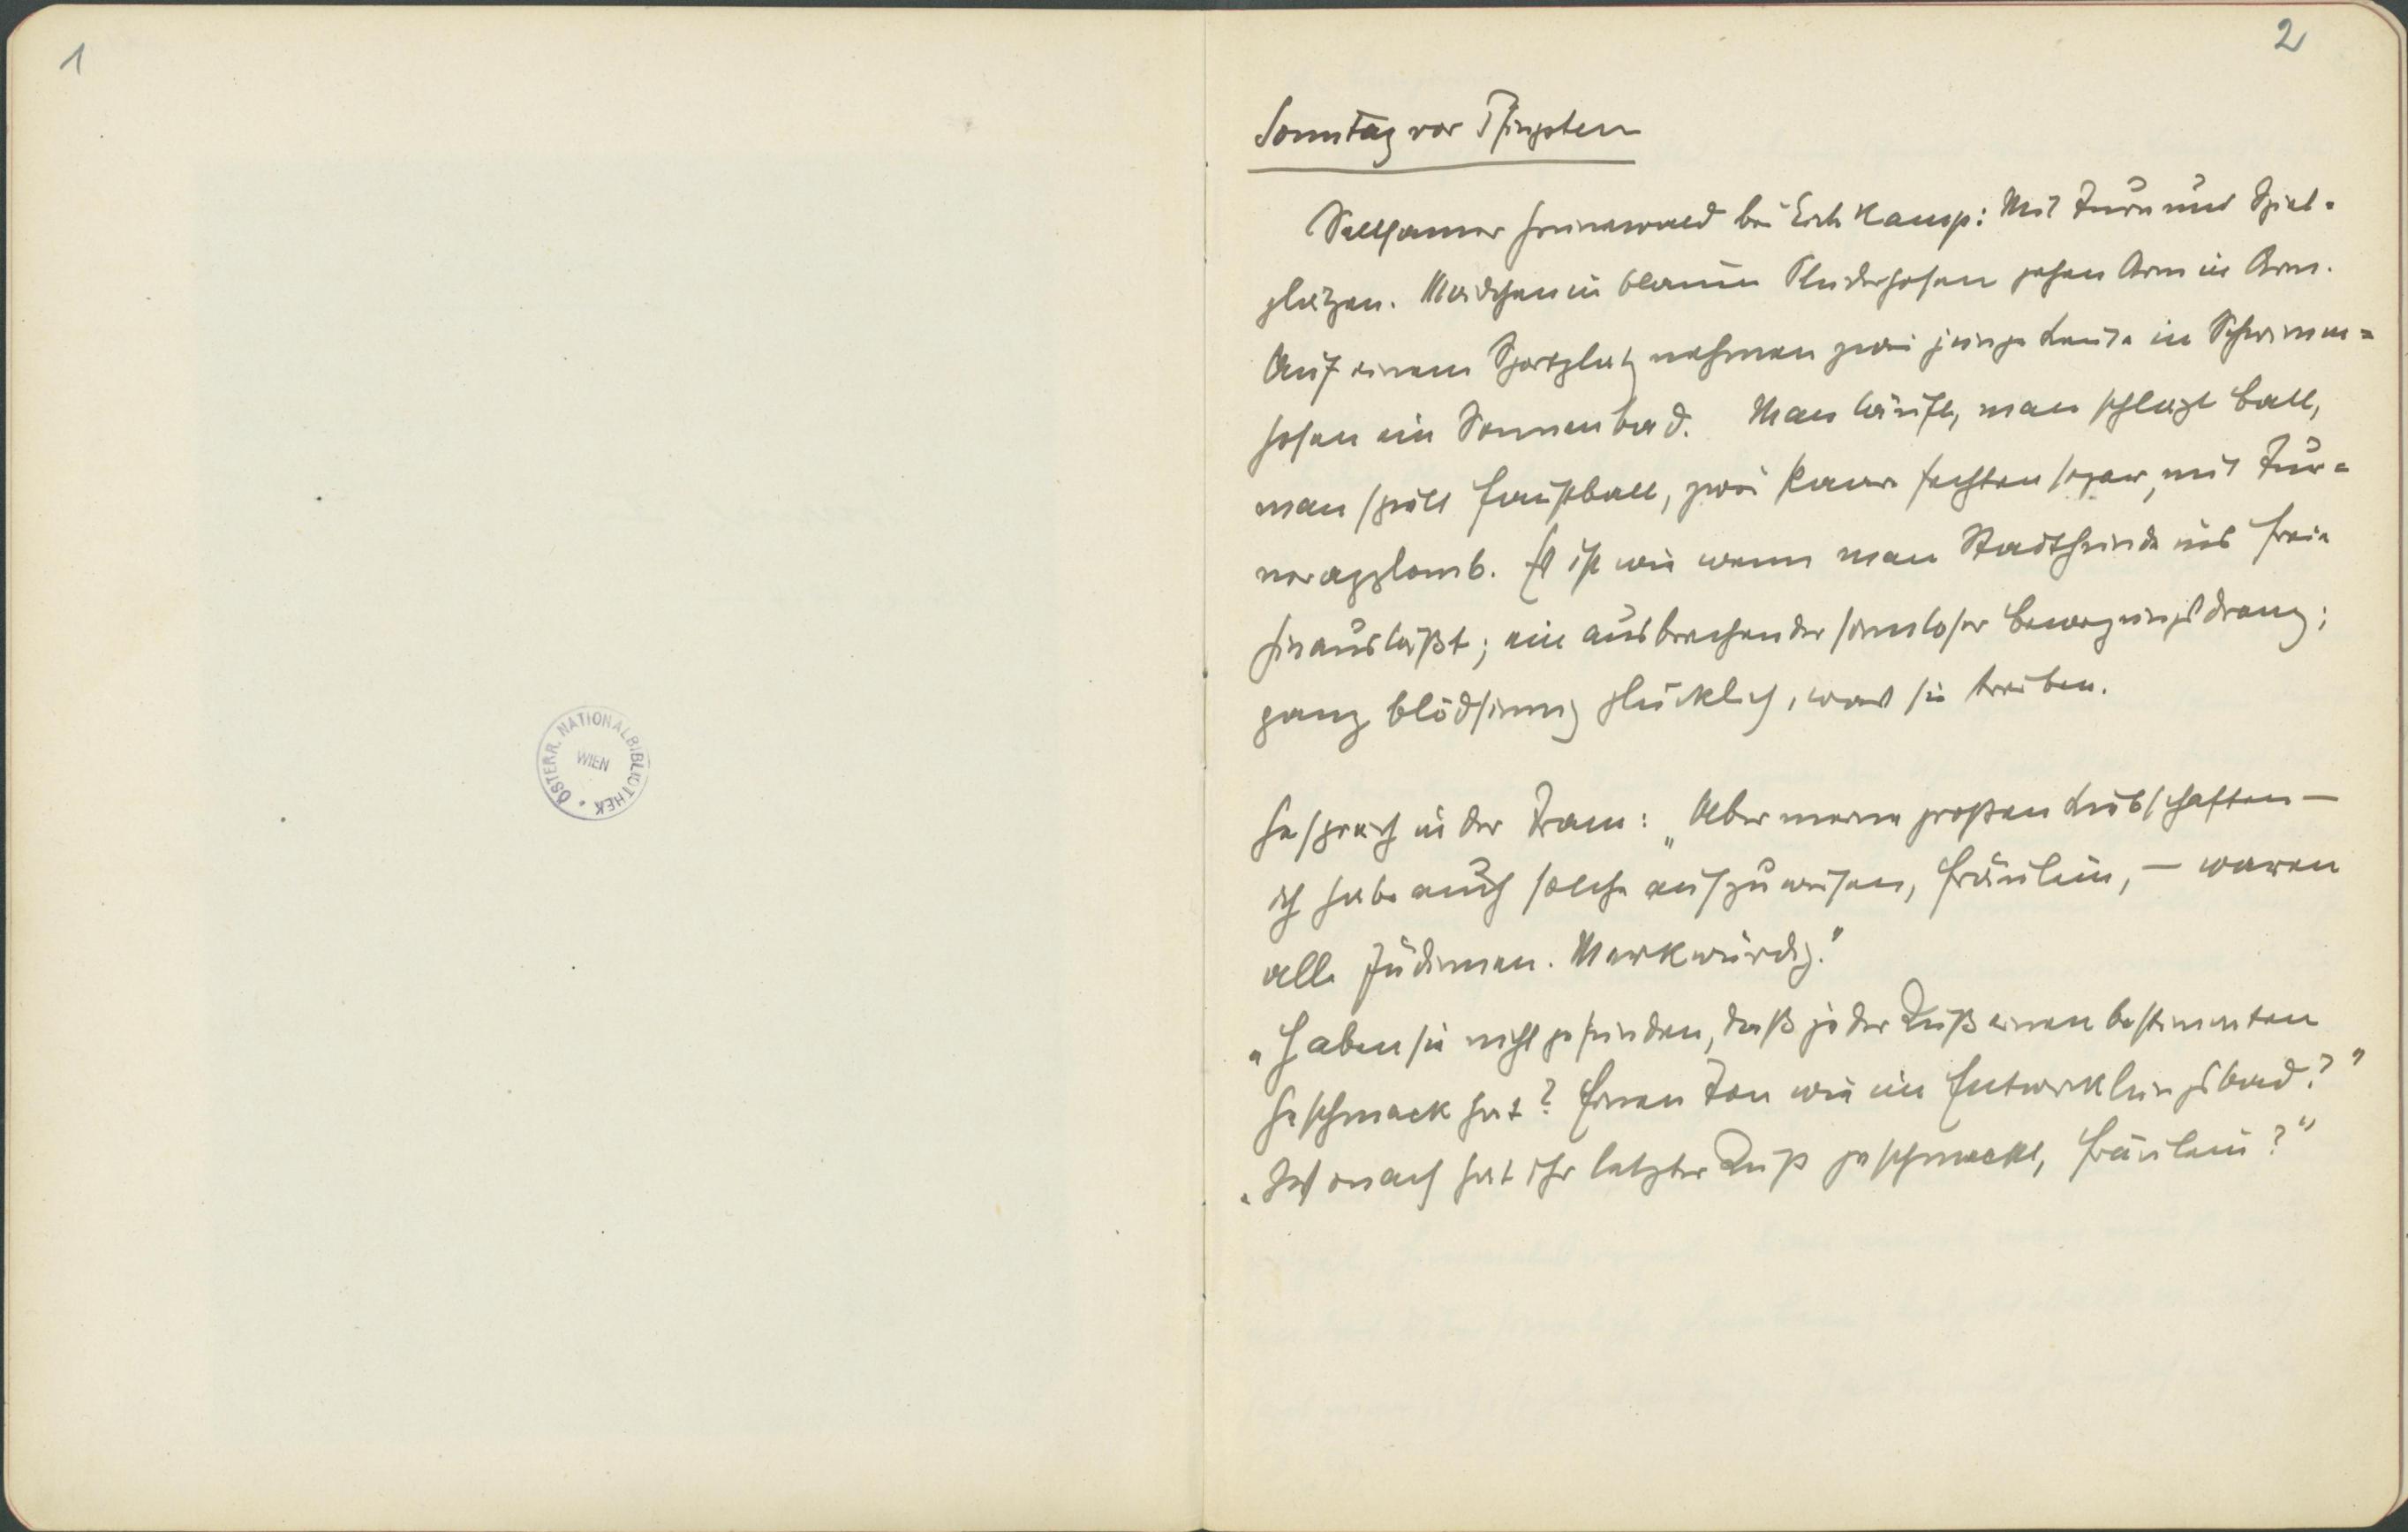 1
2
Sonntag vor Pfingsten
Seltsamer Grunewald bei Eichkamp: Mit Turn und Spiel-
plätzen. Mädchen in blauen Pluderhosen gehen Arm in Arm.
Auf einem Sportplatz nehmen zwei junge Leute in Schwimm-
hosen ein Sonnenbad. Man läuft, man schlägt Ball,
man spielt Faustball, zwei Paare fechten sogar, mit Tur-
nerapplomb. Es ist wie wenn man Stadthunde ins Freie
hinausläßt; ein ausbrechender sinnloser Bewegungsdrang;
ganz blödsinnig glücklich, was sie treiben.
Gespräch in der Tram: „Aber meine großen Liebschaften –
ich habe auch solche aufzuweisen, Fräulein, – waren
alle Jüdinnen. Merkwürdig."
„Haben sie nicht gefunden, daß jeder Kuß einen bestimmten
Geschmack hat? Einen Ton wie im Entwicklungsbad?"
„Wonach hat ihr letzter Kuß geschmeckt, Fräulein?"
ÖSTERR. NATIONALBIBLIOTHEK
WIEN